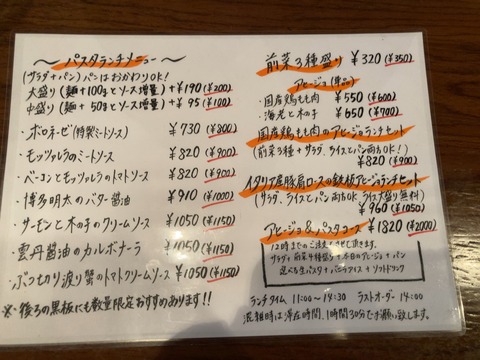 ～パスタランチメニュー～
(サラダ+パン)パンはおかわりOK!
大盛り(麺+100gとソース増量)+¥190(¥200)
中盛り(麺+50gとソース増量)+¥95(¥100)
・ボロネーゼ(特製ミートソース) ¥730(¥800)
・モッツァレラのミートソース ¥820(¥900)
・ベーコンとモッツァレラのトマトソース ¥820(¥900)
・博多明太のバター醤油 ¥910(¥1000)
・サーモンと木の子のクリームソース ¥1050(¥1150)
・雲丹醤油のカルボナーラ ¥1050(¥1150)
・ぶつ切り渡り蟹のトマトクリームソース ¥1050(¥1150)
※後ろの黒板にも数量限定おすすめあります!!
前菜3種盛り ¥320(¥350)
アヒージョ(単品)
・国産鶏もも肉 ¥550(¥600)
・海老と木の子 ¥650(¥700)
国産鶏もも肉のアヒージョランチセット
(前菜3種+サラダ、ライスとパン両方OK!)
¥820(¥900)
イタリア産豚肩ロースの鉄板アヒージョランチセット
(サラダ、ライスとパン両方OK ライス大盛り無料)
¥960(¥1050)
アヒージョ&パスタコース ¥1820(¥2000)
12時までのご注文とさせて頂きます。
サラダ+前菜4種盛り+本日のアヒージョ+パン
選べる生パスタ+バニラアイス+ソフトドリンク
ランチタイム 11:00～14:30 ラストオーダー 14:00
混雑時は滞在時間、1時間30分でお願い致します。